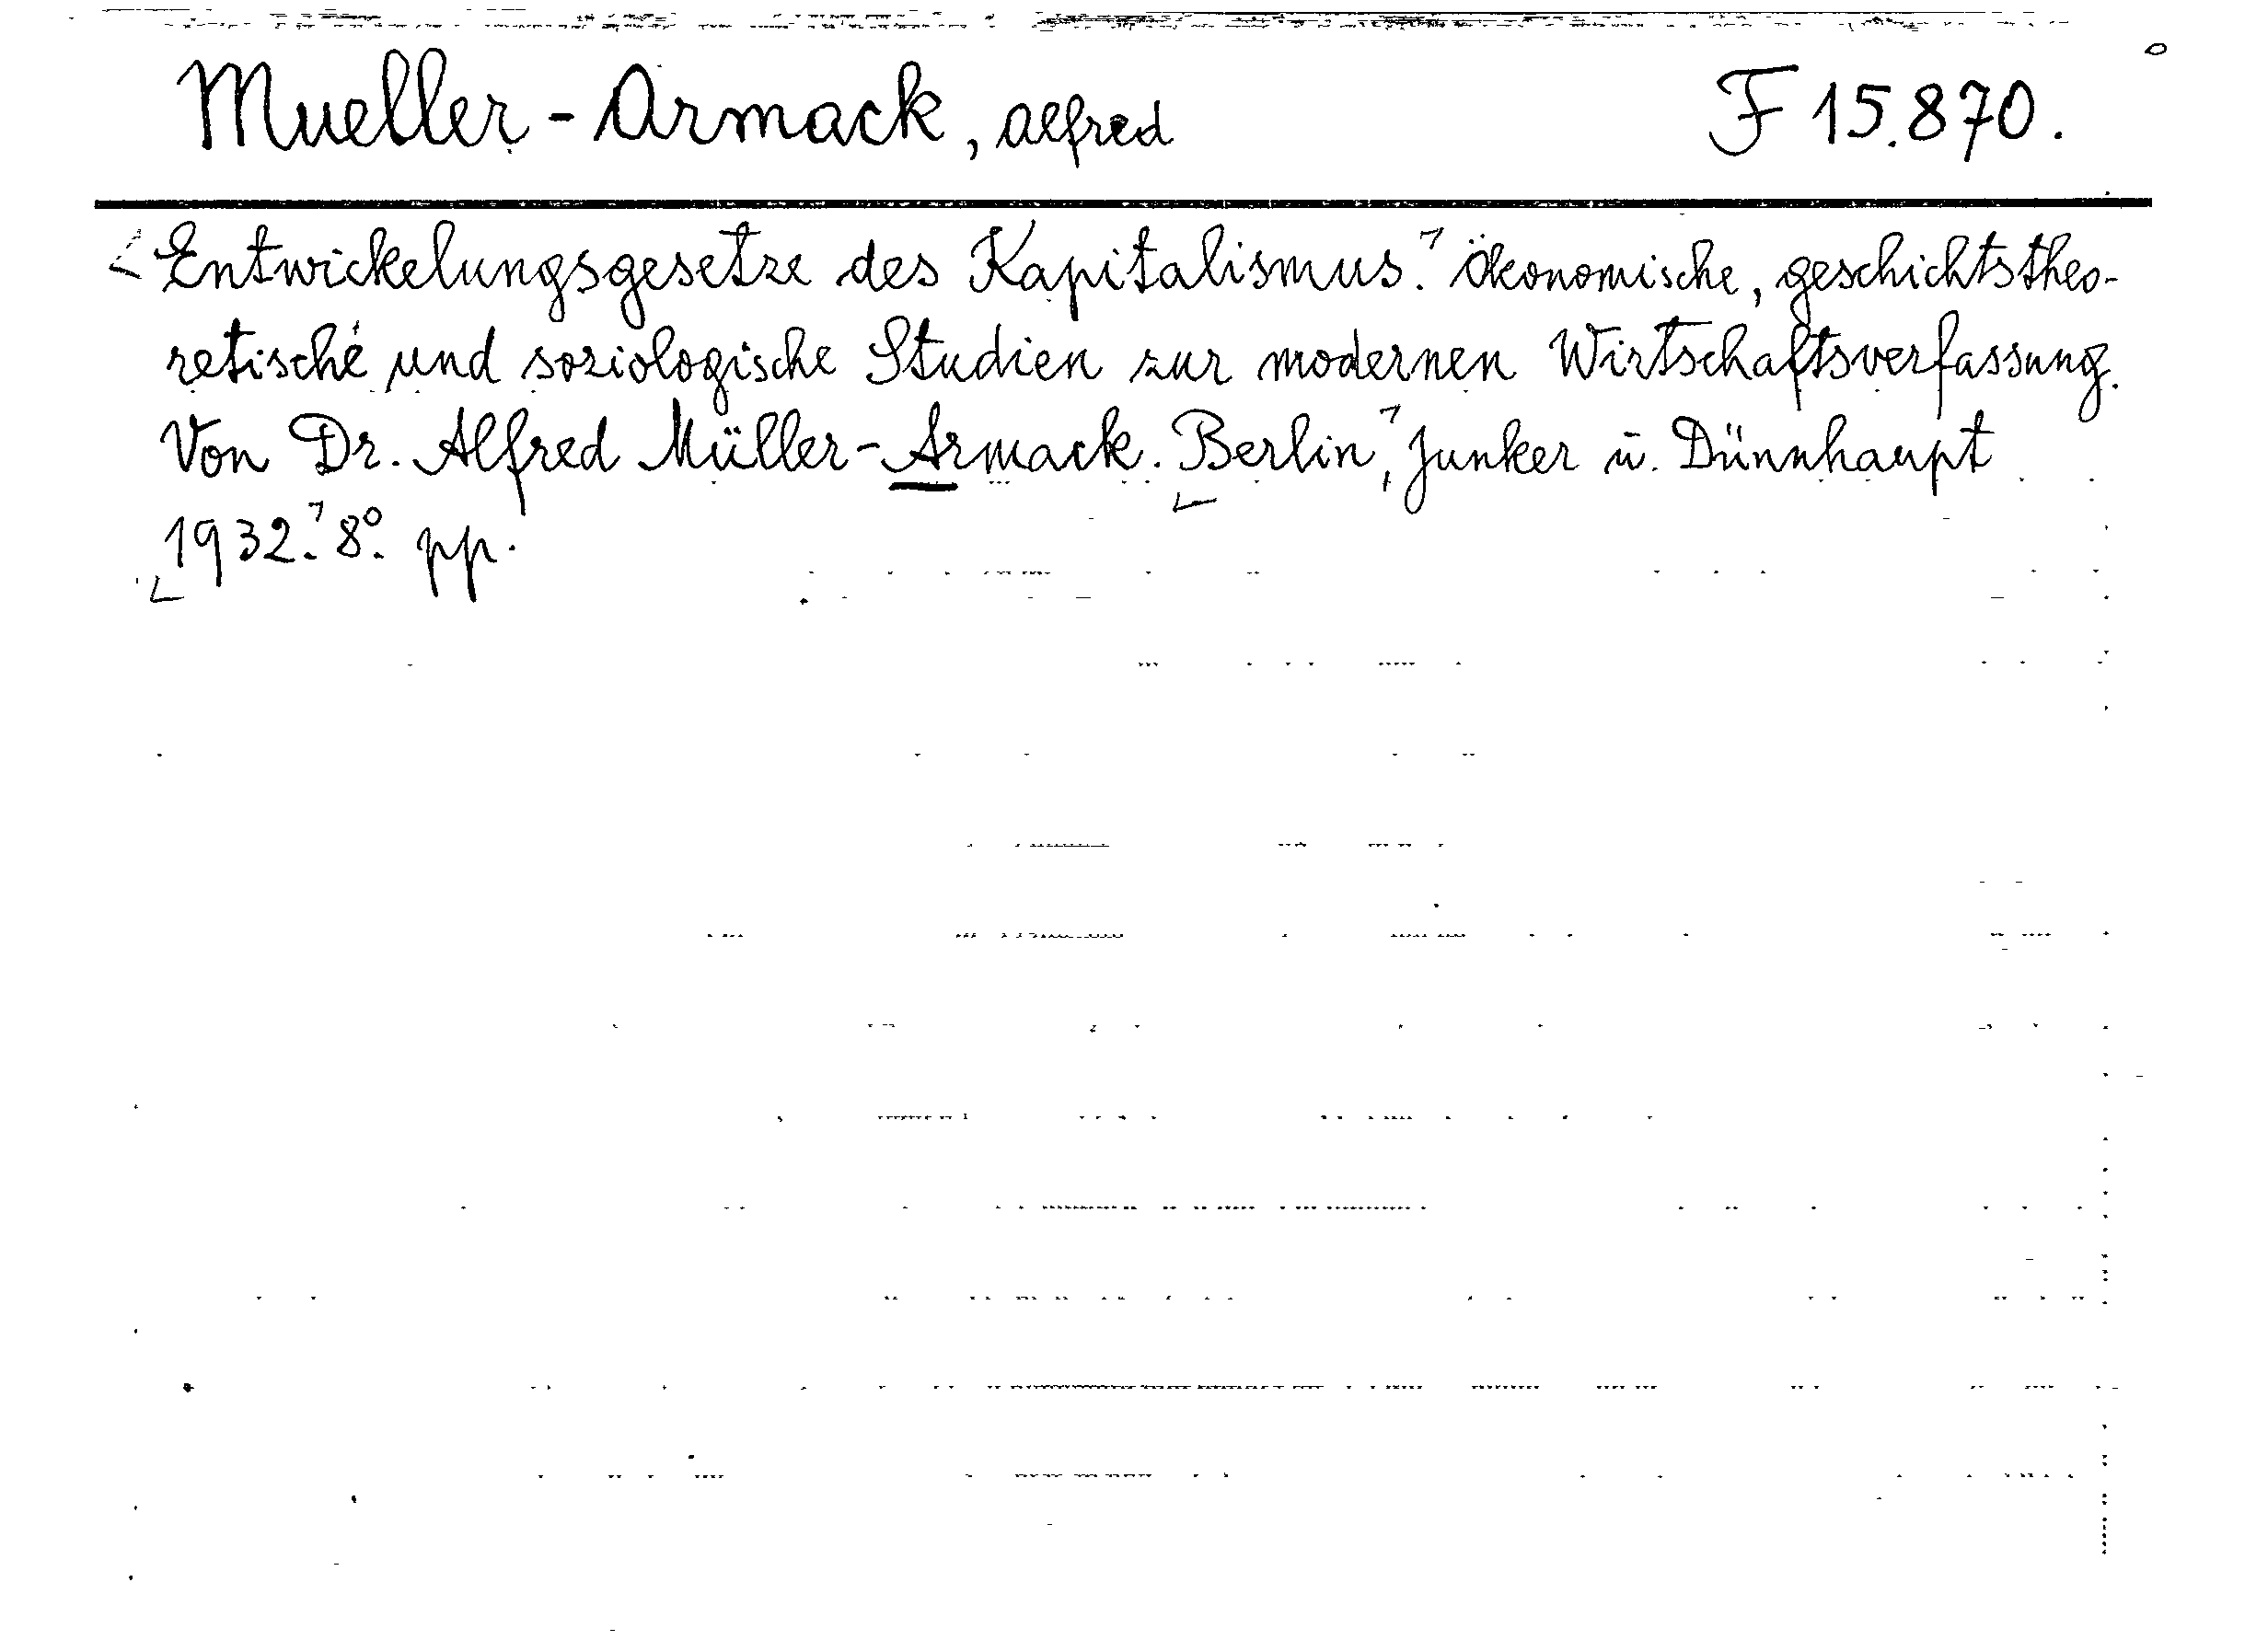 Mueller-Armack, Alfred F 15.870.
Entwickelungsgesetze des Kapitalismus. Ökonomische, geschichtstheo-
retische und soziologische Studien zur modernen Wirtschaftsverfassung.
Von Dr. Alfred Müller-Armack. Berlin, Junker u. Dünnhaupt
1932. 8°. pp.